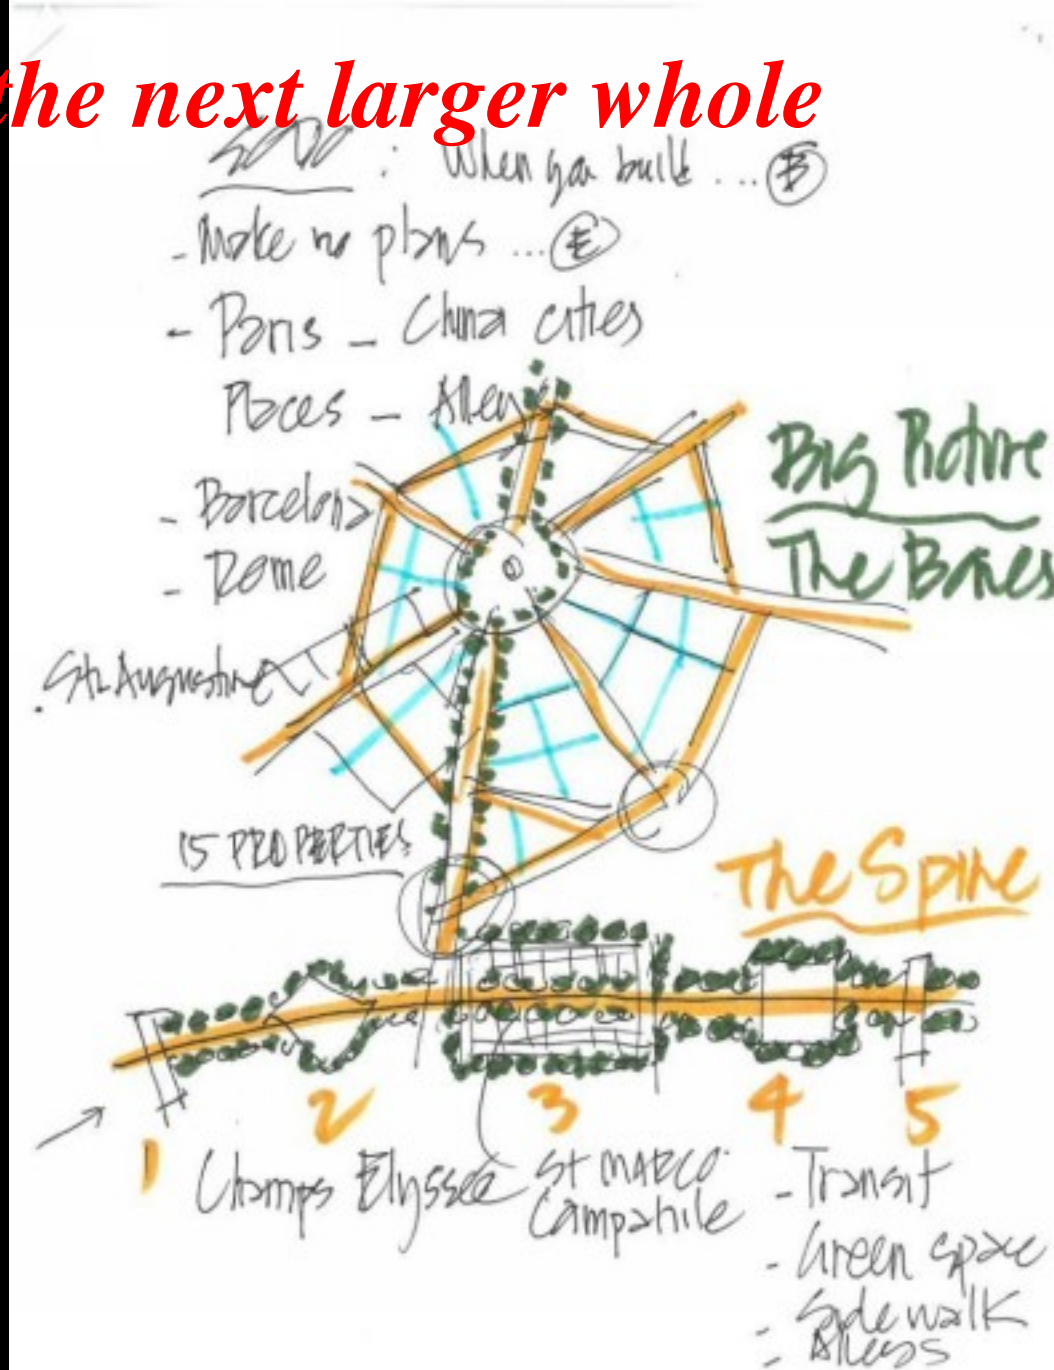 the next larger whole
: When you build ... B
- Make no plans ... E
- Paris - China cities
Places - Alleys
- Barcelona
- Rome
. St. Augustine
Big Picture
The Bones
15 PROPERTIES
The Spine
1 2 3 4 5
Champs Elyssée
St MARCO
Campanile
- Transit
- Green space
- Sidewalk
- Alleys